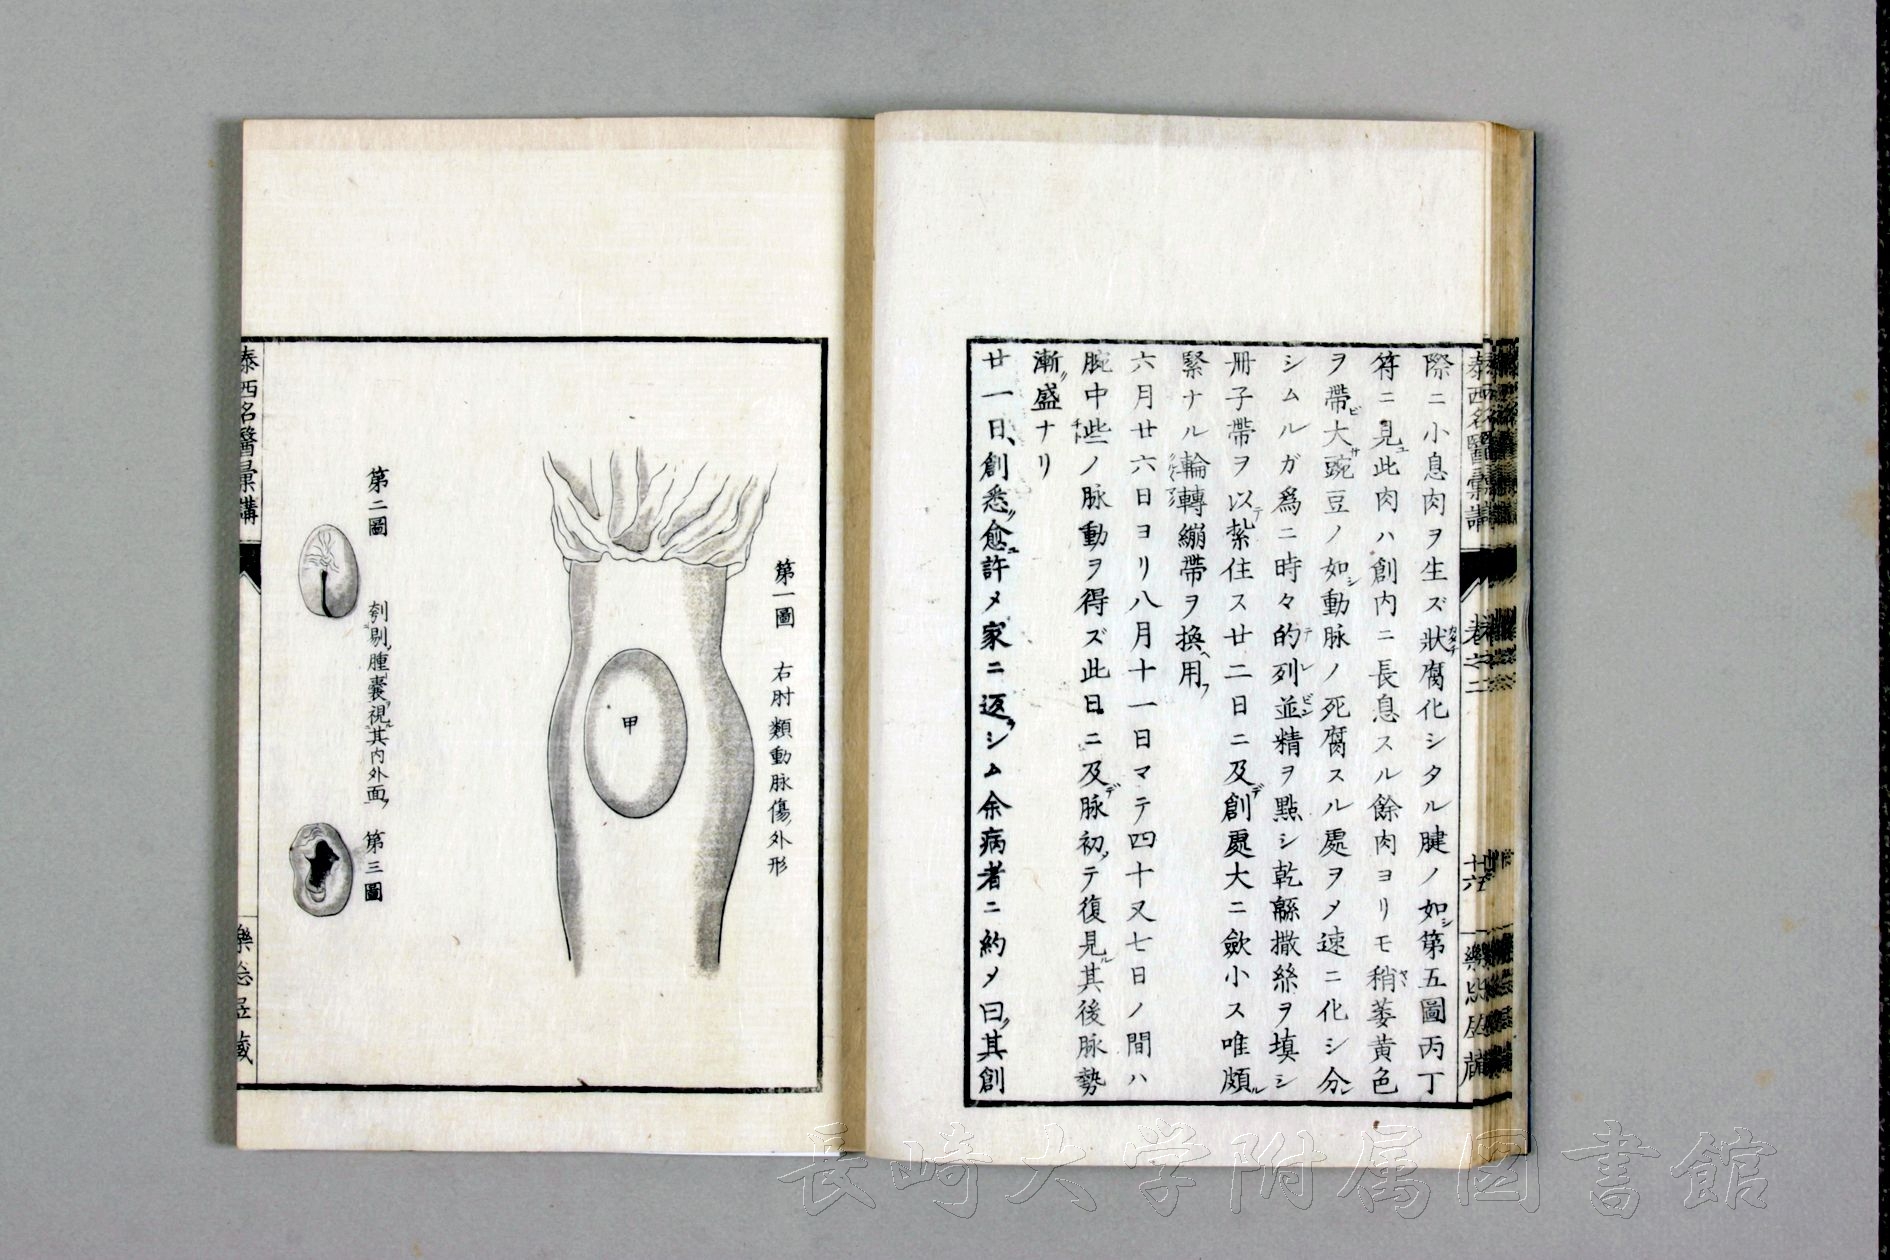 泰西名醫彙講
卷之二
十六
際ニ小息肉ヲ生ズ狀腐化シタル腱ノ如シ第五圖丙丁
符ニ見ユ此肉ハ創内ニ長息スル餘肉ヨリモ稍萎黄色
ヲ帶ビ大サ豌豆ノ如シ動脉ノ死腐スル處ヲメ速ニ化シ分レ
シムルガ爲ニ時々的列並精ヲ點シ乾緜撒絲ヲ填シ
冊子帶ヲ以テ紮住ス廿二日ニ及デ創處大ニ歛小ス唯頗ル
緊ナル輪轉繃帶ヲ換ヘ用フ
六月廿六日ヨリ八月十一日マテ四十又七日ノ間ハ
腕中些ノ脉動ヲ得ズ此日ニ及デ脉初テ復見ル其後脉勢
漸ク盛ナリ
廿一日、創悉ク愈ユ許メ家ニ返ラシム余病者ニ約メ曰ク其創
第一圖 右肘類動脉傷ノ外形
甲
第二圖
刳剔腫嚢視其内外面 第三圖
泰西名醫彙講
長崎大学附属図書館